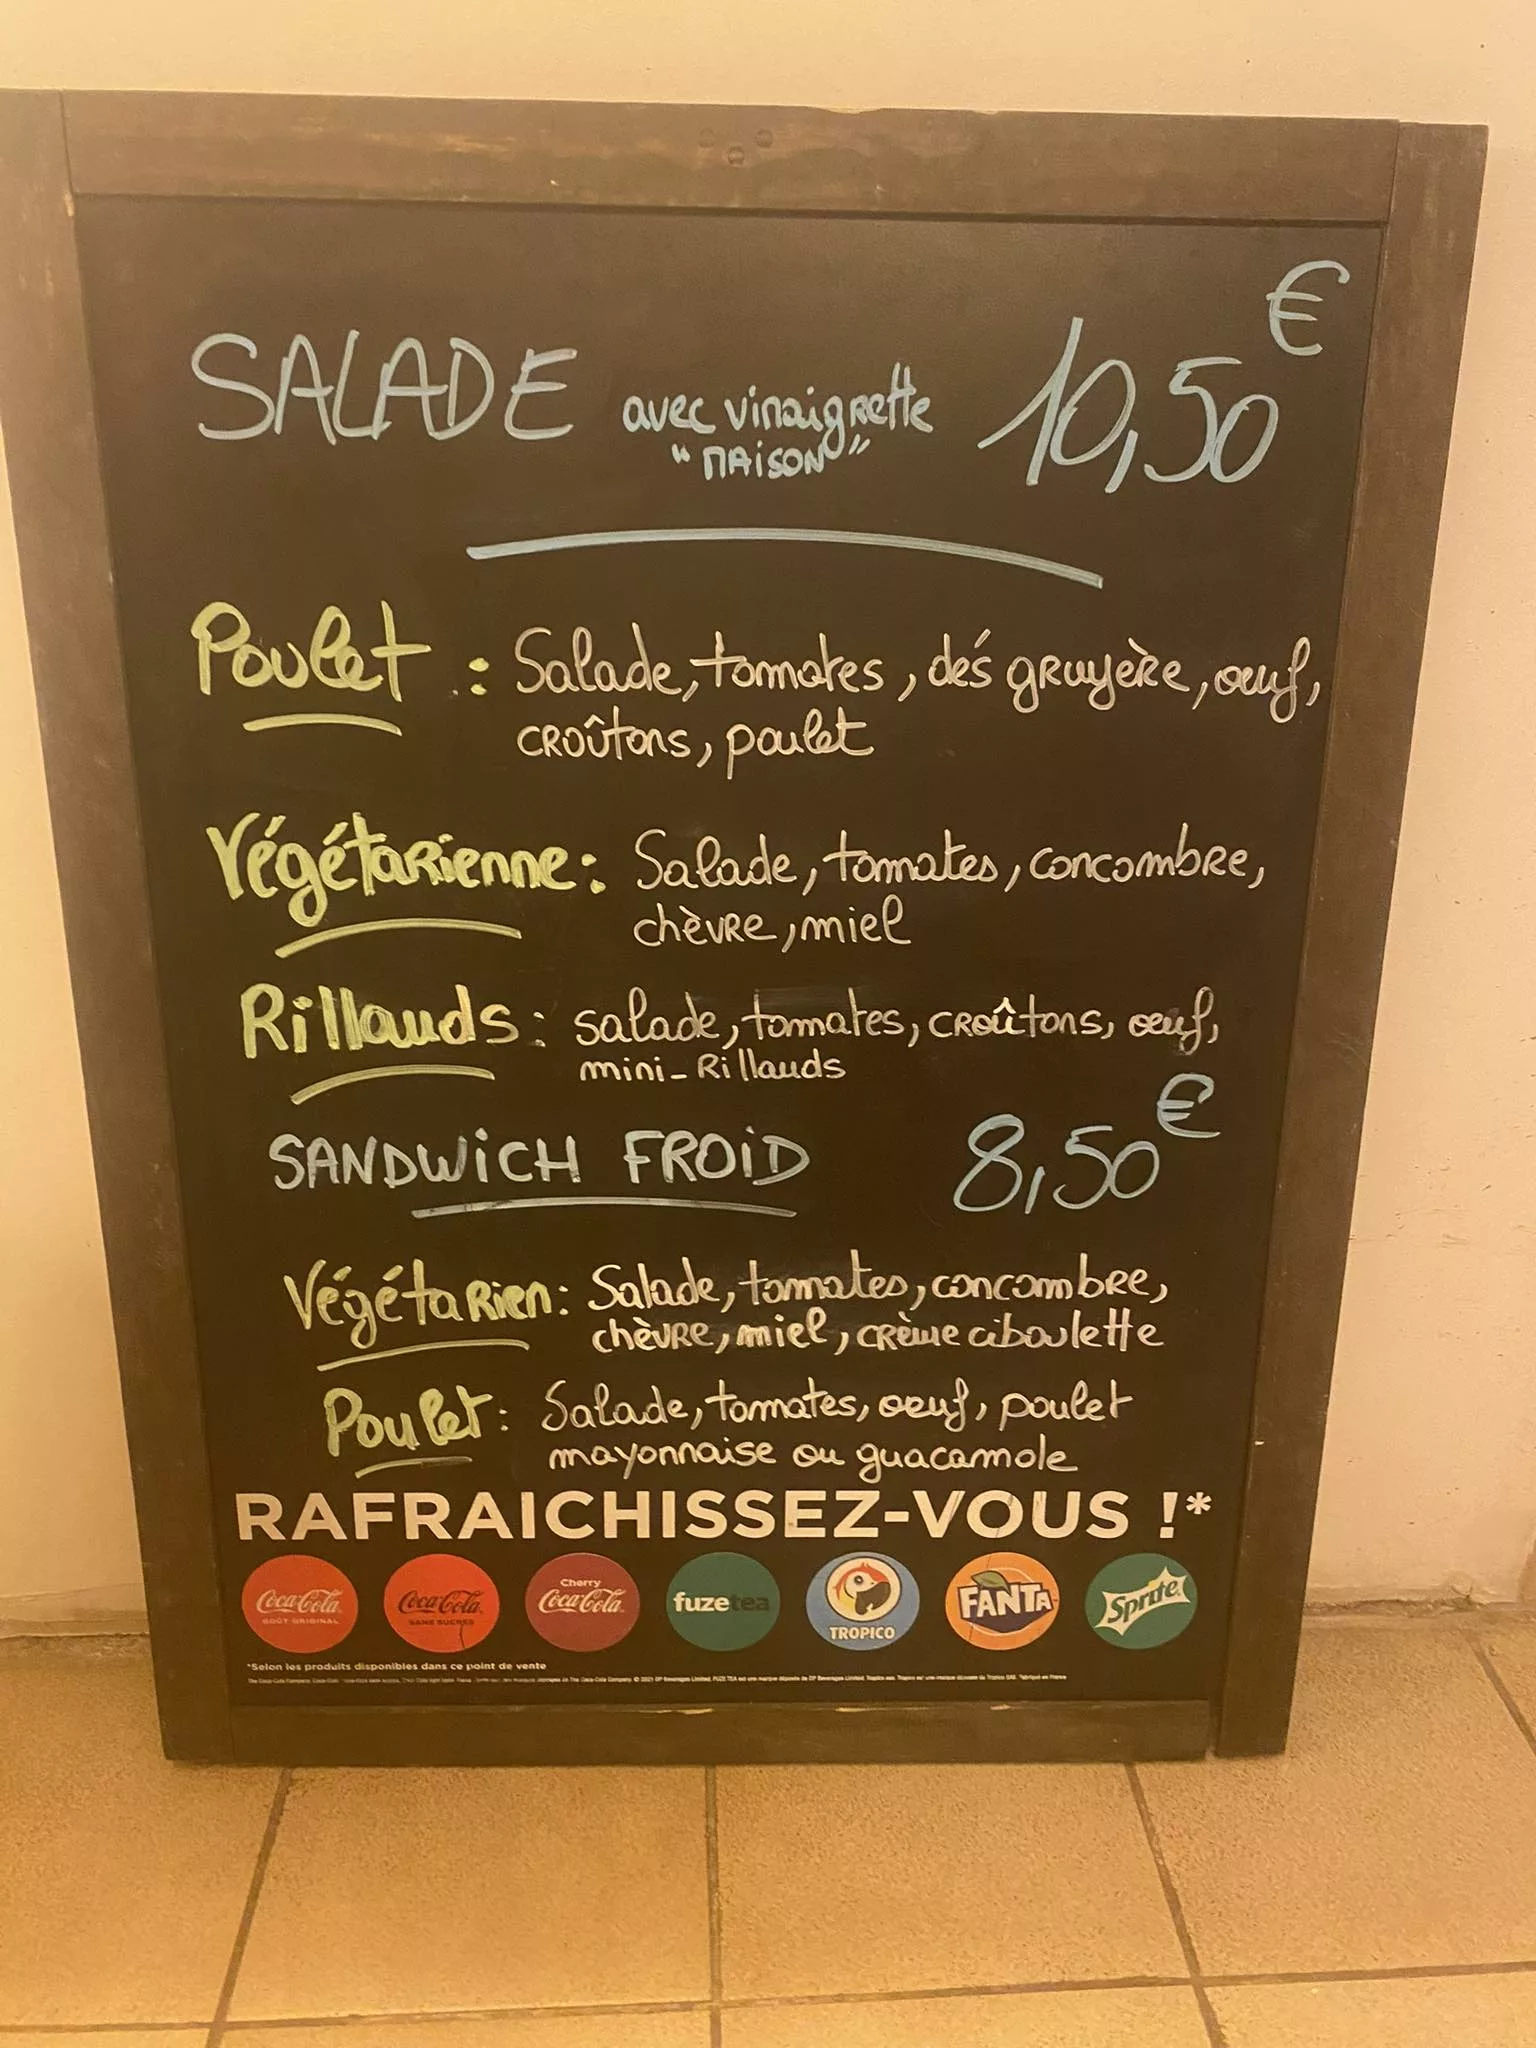 SALADE avec vinaigrette "MAISON" 10,50 €
Poulet : Salade, tomates, dés gruyère, œuf,
croûtons, poulet
Végétarienne : Salade, tomates, concombre,
chèvre, miel
Rillauds : salade, tomates, croûtons, œuf,
mini-Rillauds
SANDWICH FROID 8,50 €
Végétarien : Salade, tomates, concombre,
chèvre, miel, crème ciboulette
Poulet : Salade, tomates, œuf, poulet
mayonnaise ou guacamole
RAFRAICHISSEZ-VOUS !*
Coca-Cola GOÛT ORIGINAL
Coca-Cola SANS SUCRES
Cherry Coca-Cola
fuzetea
TROPICO
FANTA
Sprite
*Selon les produits disponibles dans ce point de vente